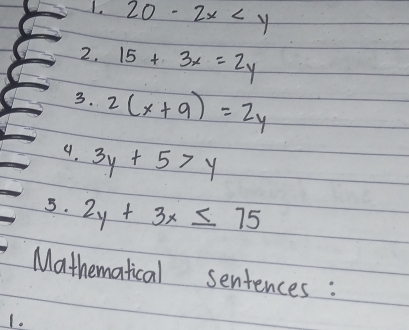 1. 20 - 2x < y
2. 15 + 3x = 2y
3. 2(x+9) = 2y
4. 3y + 5 > y
5. 2y + 3x ≤ 75
Mathematical sentences :
1.